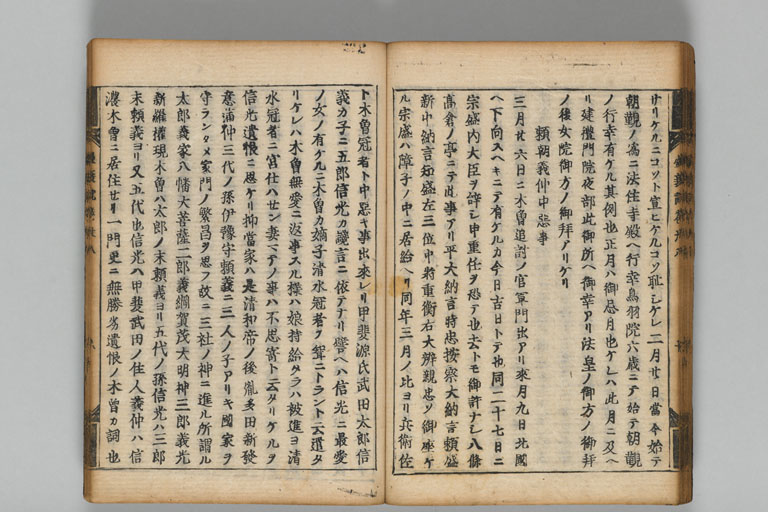 サリケルニコソト宣ヒケルコソ恥シケレ二月廿日當今始テ
朝覲ノ爲ニ法住寺殿ヘ行幸鳥羽院六歳ニテ始テ朝覲
ノ行幸有ケル其例也正月ハ御忌月也ケレハ此月ニ及ヘ
リ建禮門院夜部此御所ヘ御幸アリ法皇ノ御方ノ御拜
ノ後女院御方ノ御拜アリケリ
頼朝義仲中惡事
三月廿六日ニ木曽追討ノ官軍門出アリ來月九日北國
ヘ下向スヘキニテ有ケルカ今日吉日トテ也同二十七日ニ
宗盛内大臣ヲ辞シ申重任ヲ恐テ也去トモ御許ナシ八條
高倉ノ亭ニテ此事アリ平大納言時忠按察大納言頼盛
新中納言知盛左三位中將重衡右大辨親忠ソ御座ケ
ル宗盛ハ障子ノ中ニ居給ヘリ同年三月ノ比ヨリ兵衛佐
ト木曽冠者ト中惡キ事出來レリ甲斐源氏武田太郎信
義カ子ニ五郎信光カ讒言ニ依テナリ信光ニ最愛
ノ女ノ有ケルニ木曽カ嫡子清水冠者ヲ聟ニトラント云遣タ
リケレハ木曽無愛ニ返事スル樣ハ娘持給タラハ被進ヨ清
水冠者ニ宮仕ハセン妻マテノ事ハ不思寄ト云タリケルヲ
信光遺恨ニ思ケリ抑當家ハ是清和帝ノ後胤多田新發
意滿仲三代ノ孫伊豫守頼義ニ三人ノ子アリキ國家ヲ
守ランタメ家門ノ繁昌ヲ思フ故ニ三社ノ神ニ進ル所謂ル
太郎義家八幡大菩薩二郎義綱賀茂大明神三郎義光
新羅權現木曽ハ太郎ノ末頼義ヨリ五代ノ孫信光ハ三郎
末頼義ヨリ又五代也信光ハ甲斐武田ノ住人義仲ハ信
濃木曽ニ居住セリ一門更ニ無勝劣遺恨ノ木曽カ詞也